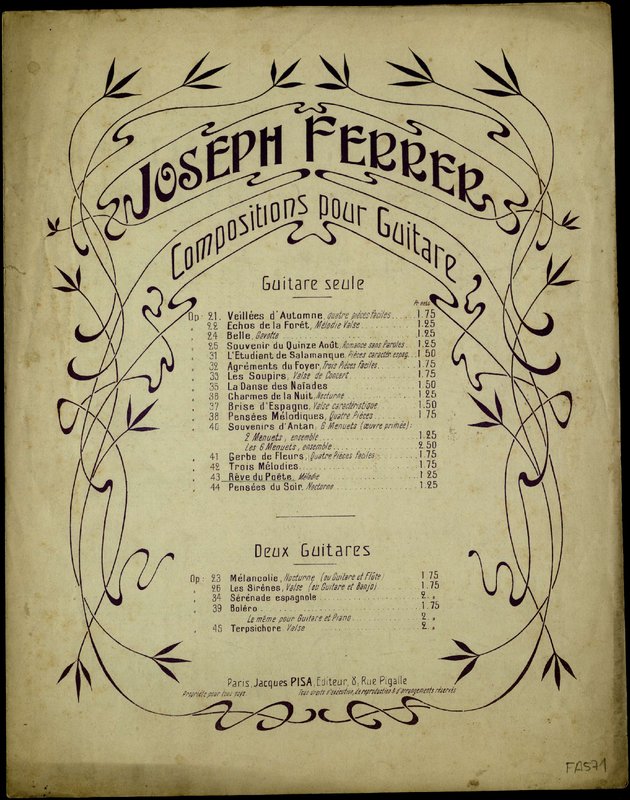 JOSEPH FERRER
Compositions pour Guitare
Guitare seule
Px nets
Op. 21. Veillées d'Automne, quatre pièces faciles. 1.75
" 22 Echos de la Forêt, Mélodie Valse 1.25
" 24 Belle, Gavotte 1.25
" 25 Souvenir du Quinze Août, Romance sans Paroles. 1.25
" 31 L'Étudiant de Salamanque, Pièces caractér. espag. 1.50
" 32 Agréments du Foyer, Trois Pièces faciles. 1.75
" 33 Les Soupirs, Valse de Concert 1.75
" 35 La Danse des Naïades 1.50
" 36 Charmes de la Nuit, Nocturne 1.25
" 37 Brise d'Espagne, Valse caractéristique 1.50
" 38 Pensées Mélodiques, Quatre Pièces 1.75
" 40 Souvenirs d'Antan, 6 Menuets (œuvre primée):
2 Menuets, ensemble 1.25
Les 6 Menuets, ensemble 2.50
" 41 Gerbe de Fleurs, Quatre Pièces faciles 1.75
" 42 Trois Mélodies 1.75
" 43 Rêve du Poète, Mélodie 1.25
" 44 Pensées du Soir, Nocturne 1.25
Deux Guitares
Op: 23 Mélancolie, Nocturne (ou Guitare et Flûte) 1.75
" 26 Les Sirènes, Valse (ou Guitare et Banjo) 1.75
" 34 Sérénade espagnole 2 "
" 39 Boléro 1.75
Le même pour Guitare et Piano 2 "
" 45 Terpsichore. Valse 2 "
Paris, Jacques PISA, Editeur, 8, Rue Pigalle
Propriété pour tous pays. Tous droits d'exécution, de reproduction & d'arrangements réservés
FA571